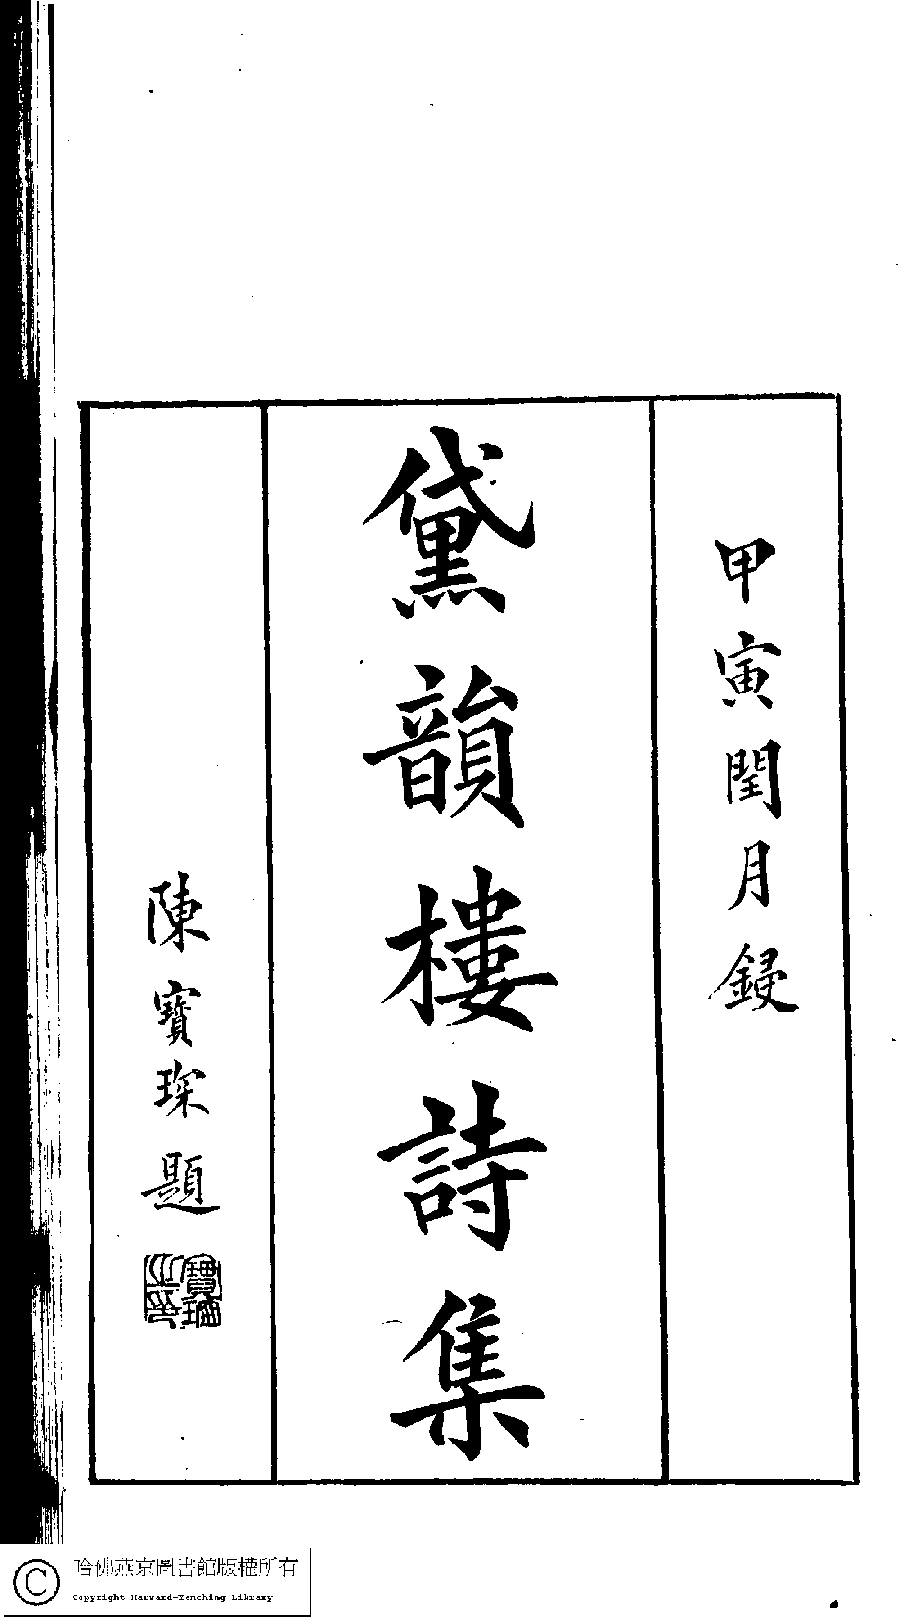 甲寅閏月錽
黛韻樓詩集
陳寶琛題
寶琛之印
哈佛燕京圖書館版權所有
Copyright Harvard-Yenching Library